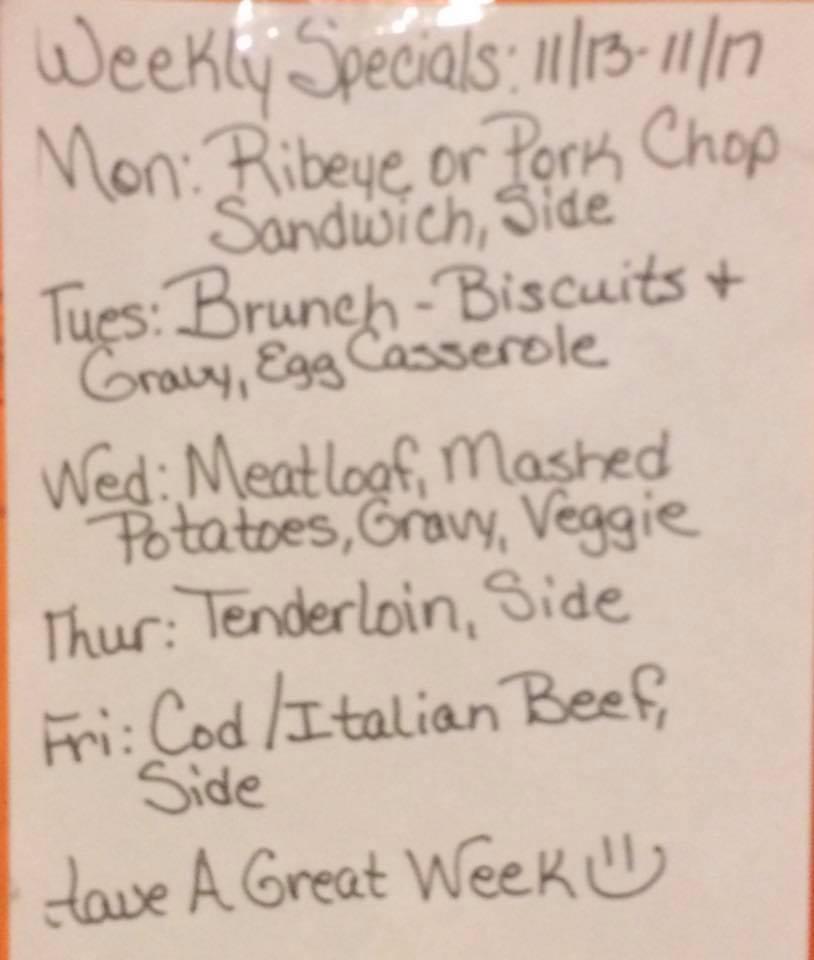 Weekly Specials: 11/13-11/17
Mon: Ribeye or Pork Chop
Sandwich, Side
Tues: Brunch - Biscuits +
Gravy, Egg Casserole
Wed: Meatloaf, Mashed
Potatoes, Gravy, Veggie
Thur: Tenderloin, Side
Fri: Cod/Italian Beef,
Side
Have A Great Week